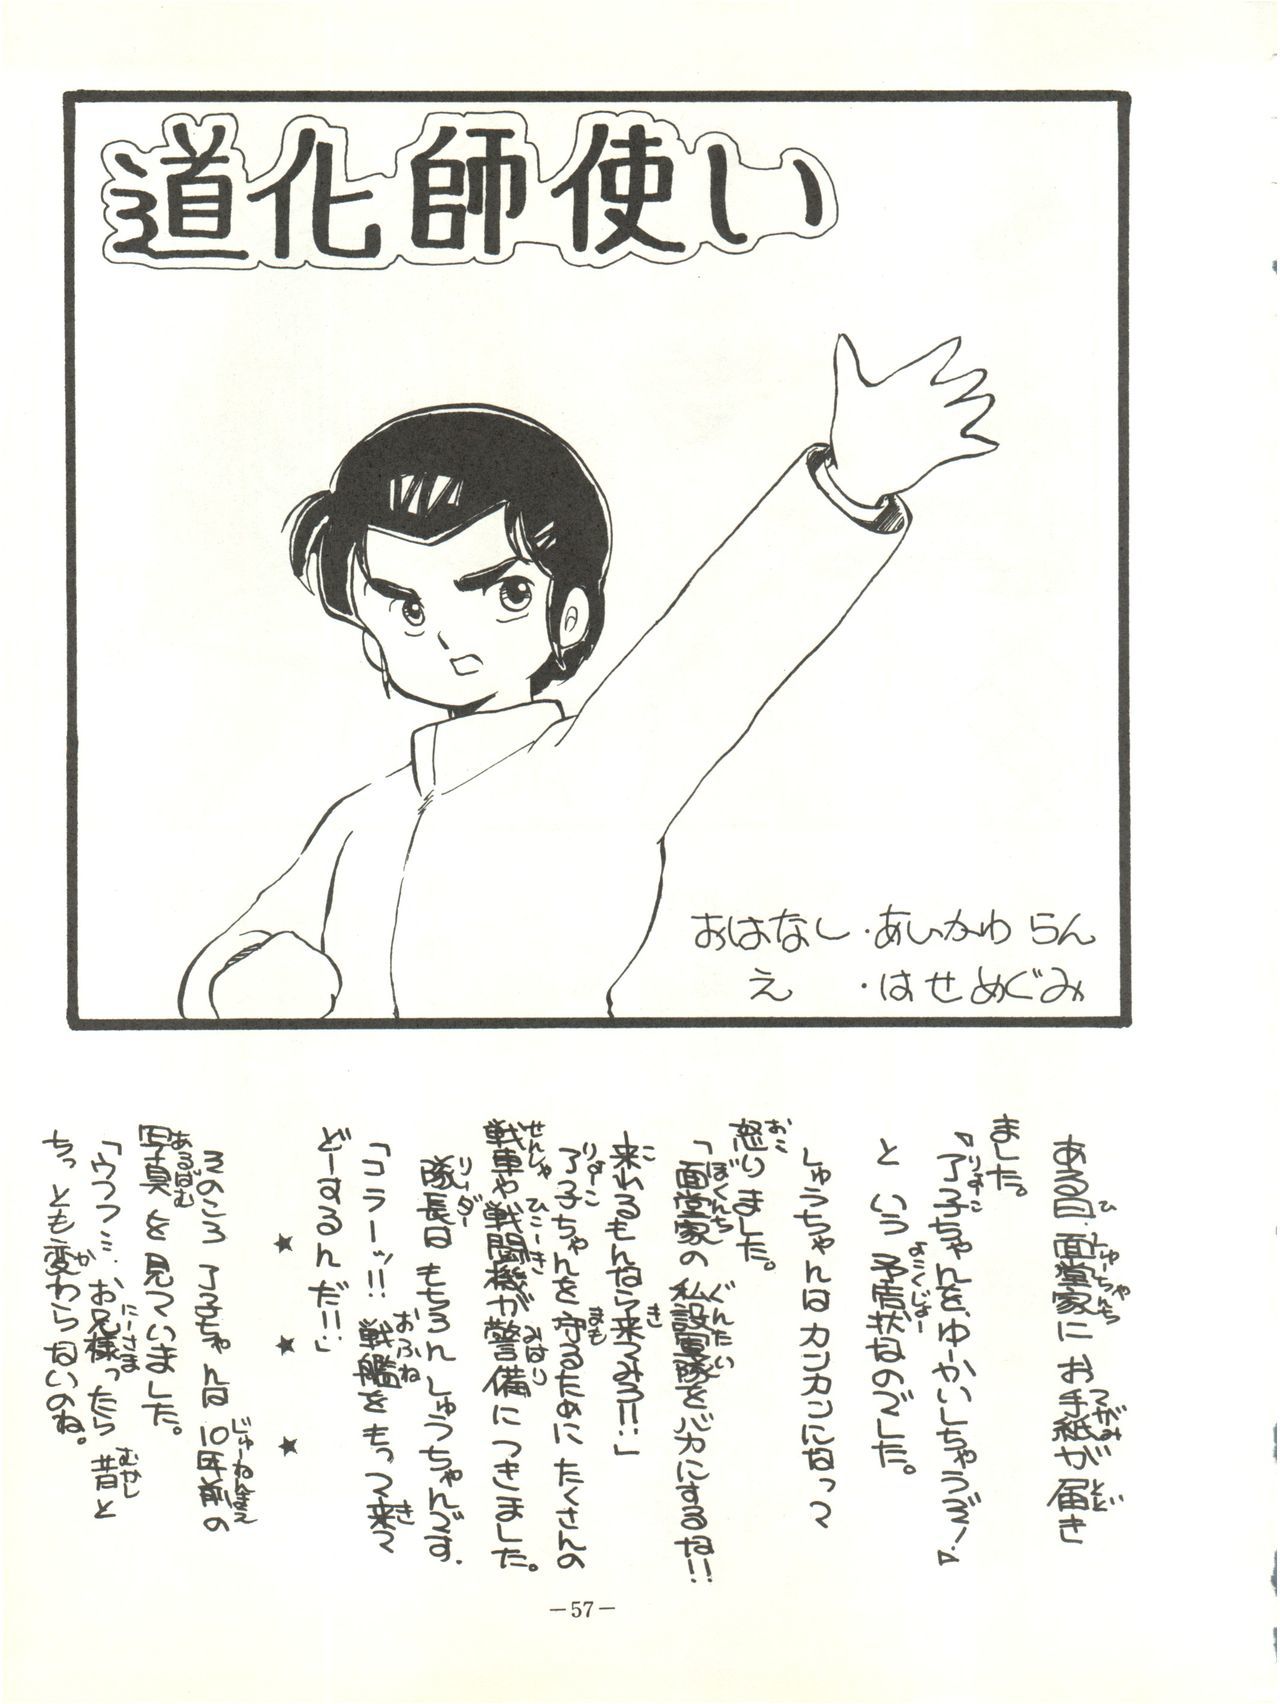 道化師使い
おはなし・あいかわ らん
え ・はせ めぐみ
ある日、面堂家にお手紙が届き
ました。
『了子ちゃんを、ゆーかいしちゃうぞ！』
という予告状なのでした。
しゅうちゃんはカンカンになって
怒りました。
「面堂家の私設軍隊をバカにするな!!
来れるもんなら来てみろ!!」
了子ちゃんを守るためにたくさんの
戦車や戦闘機が警備につきました。
隊長はもちろんしゅうちゃんです．
「コラーッ!! 戦艦をもって来て
どーするんだ!!」
★ ★ ★
そのころ了子ちゃんは10年前の
写真を見ていました。
「ウフフ…お兄様ったら昔と
ちっとも変わらないのね。
—57—